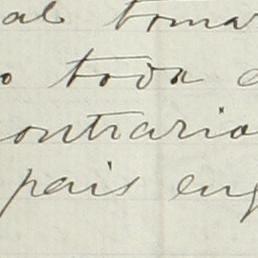 al toma
o toda
ontrario
pais eng